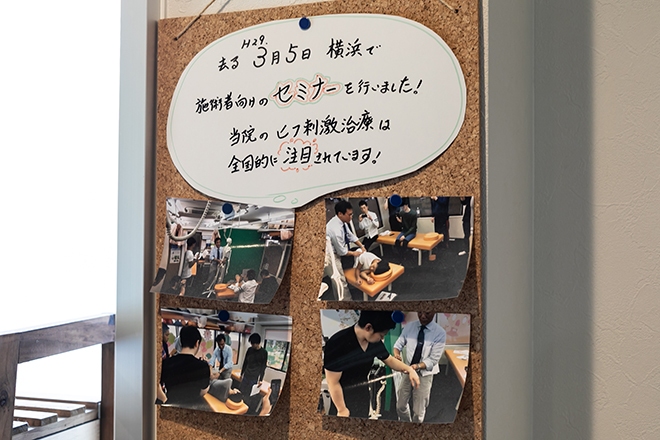 H29.
去る 3月5日 横浜で
施術者向けの セミナー を行いました!
当院の ヒフ刺激治療は
全国的に 注目されています!